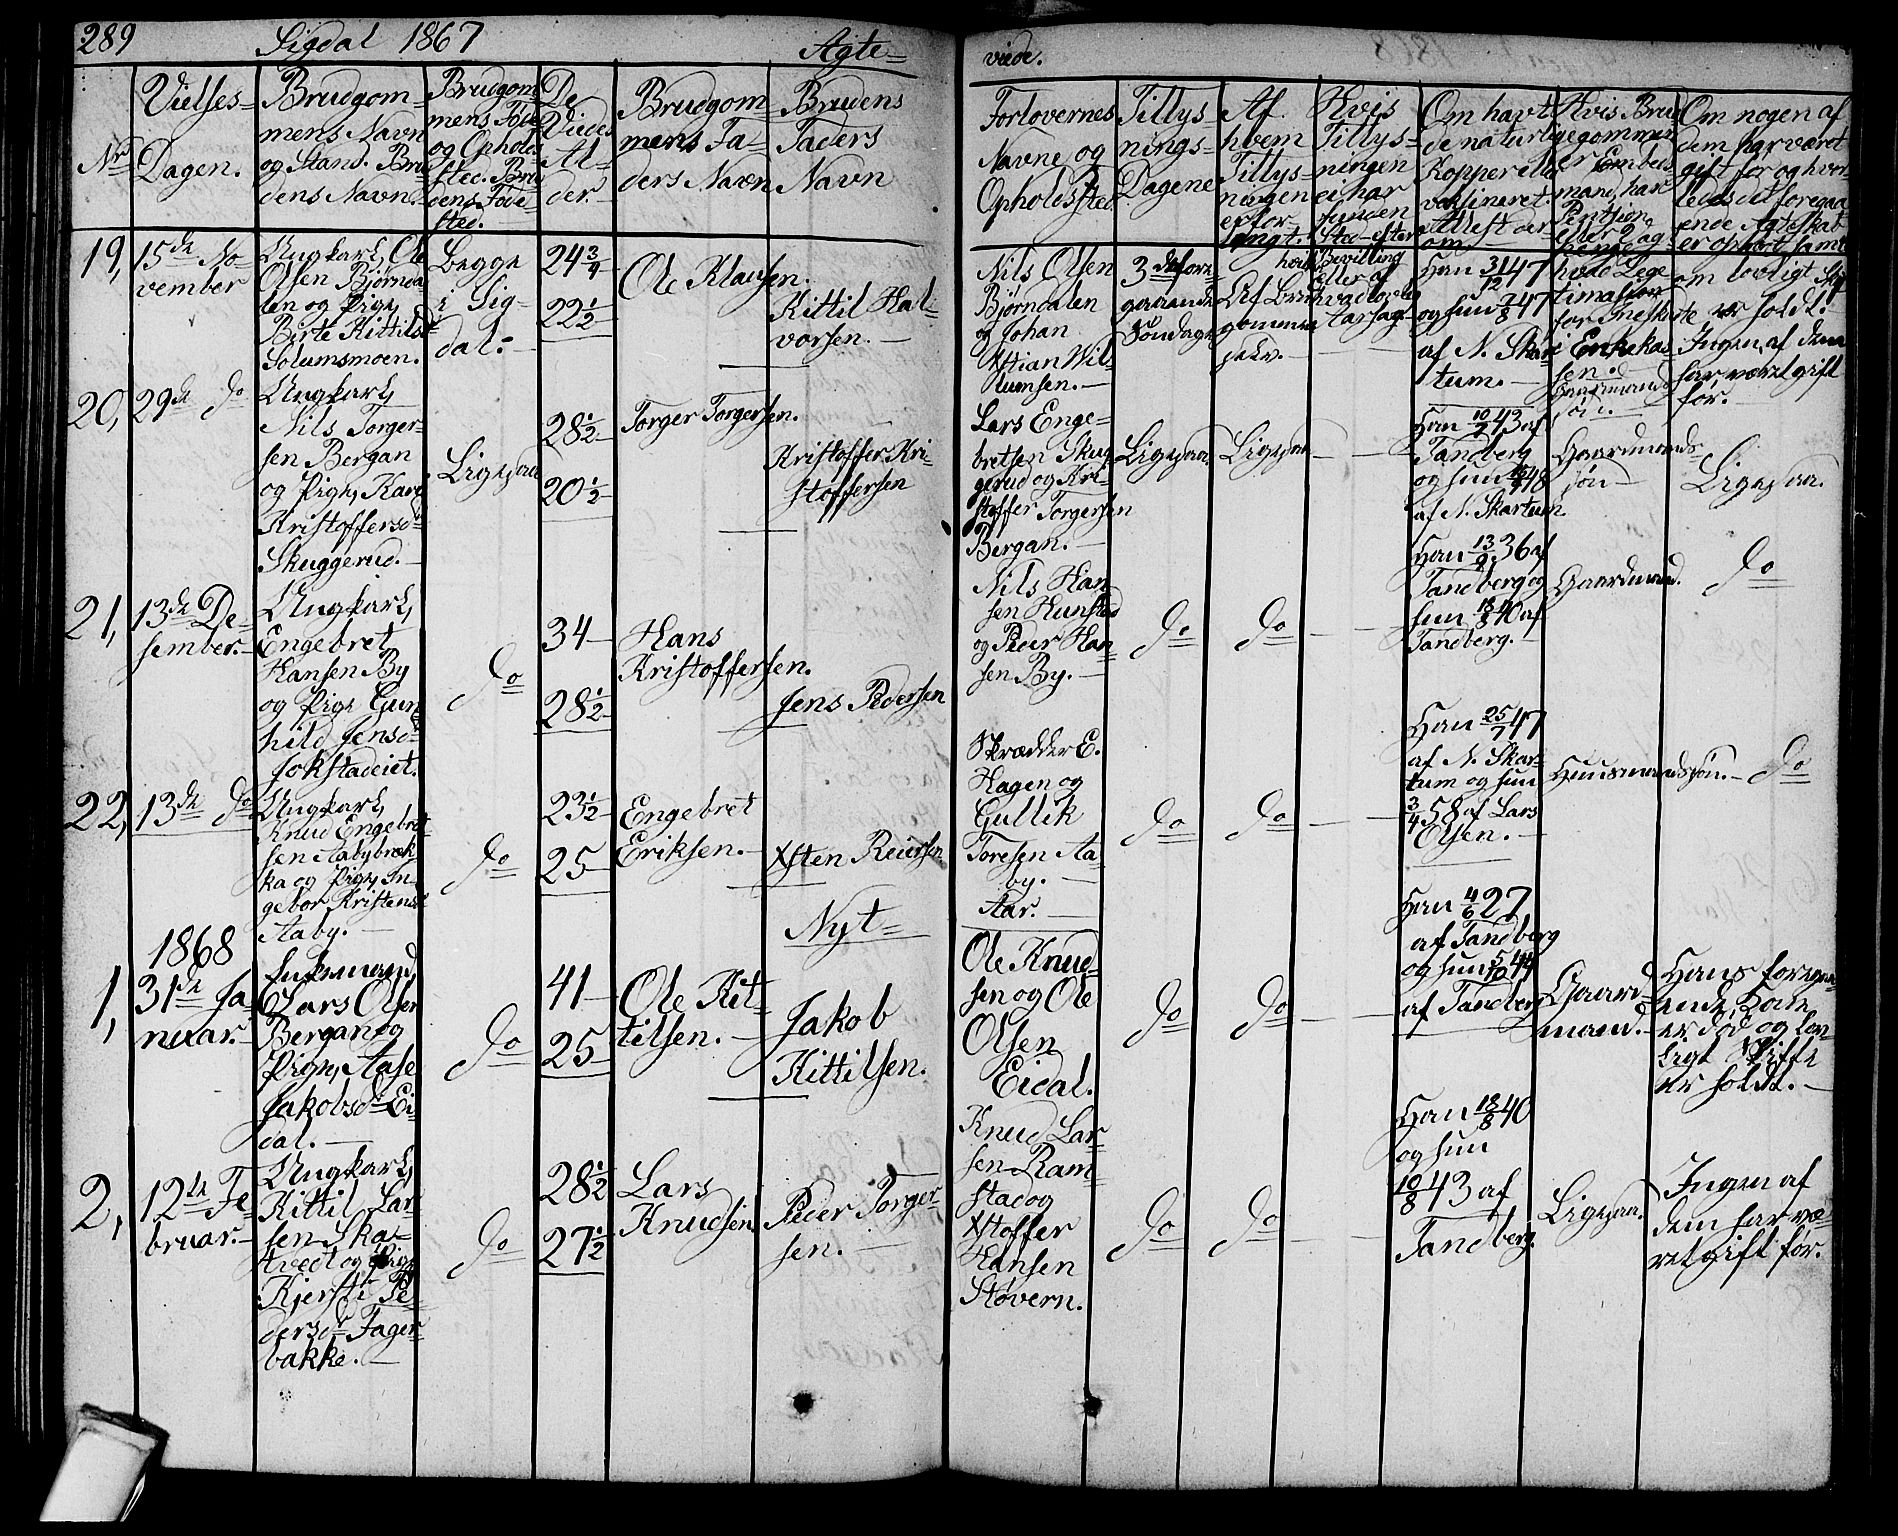 289 Sigdal 1867 Ægte=
viede.
Nr
Vielses=
Dagen.
Brudgom=
mens Navn
og Stand. Bru
dens Navn.
Brudgom
mens Føde
og Opholds
sted. Bru
dens Føde=
sted.
De
Viedes
Al=
der.
Brudgom=
mens Fa=
ders Navn
Brudens
Faders
Navn
Forlovernes
Navne og
Opholdssted.
Tillys=
nings=
Dagene
Af
hvem
Tillys=
ningen
er for
langt.
Hvis
Tillys=
ningen
ei har
funden
Sted efter
hvilk Bevilling
eller af
Om havt
de naturlige
Kopper eller
vaksineret.
Attest der
om.
Hvis Bru
degommen
er Embeds
mand, har
Pentsjon
Om nogen af
dem har været
gift før og hvor=
ledes det foregaa=
ende Ægteskab
er ophørt samt
19,
15de No=
vember
Ungkarl, Ole
Olsen Bjørnda
len og Pige,
Birte Kittilsdr
Solumsmoen.
Begge
i Sig=
dal.-
24¾
22½
Ole Klausen.
Kittil Hal=
vorsen.
Nils Olsen
Bjørndalen
og Johan
Kstian Wil=
lumsen.
3de fore
gaaende
Søndage
Af Brud
gommen
selv.
Han 31/12 47
og hun 7/8 47
af N. Skar
tum.
Enkekas=
sen.
Gaardmands
søn.
om lovligt Skif
te er holdt.
Ingen af dem
har været gift
før.
20,
29de do
Ungkarl,
Nils Torger=
sen Bergan
og Pige, Kari
Kristoffersdr
Skuggerud.
Ligesaa
28½
20½
Torger Torgersen.
Kristoffer Kri=
stoffersen
Lars Enge=
bretsen Skug
gerud og Kri=
stoffer Torgersen
Bergan.
Ligesaa.
Ligesaa
43 af
Tandberg
og hun 48
af N. Skartum.
Gaardmands=
søn
Ligesaa.
21,
13de De=
sember.
Ungkarl,
Engebret
Hansen By
og Pige Gun
hild Jensdr
Jokstadeiet.
do
34
28½
Hans
Kristoffersen.
Jens Pedersen
Nils Han
sen Hunstad
og Peder Han=
sen By.
do
do
Han 13/9 36 af
Tandberg og
hun 18/8 40 af
Tandberg.
Gaardmand.
do
22,
13de do
Ungkarl,
Knud Engebret
sen Aabybræk
ka og Pige, In
gebor Kristensd
Aaby.
do
23½
25
Engebret
Eriksen.
Xsten Reiersen
Skrædder E.
Hagen og
Gullik
Toresen Aa=
by.
do
do
Han 25/7 47
af N. Skar=
tum og hun
3/4 58 af Lars
Olsen.
Huusmandssøn.
do
1868
Nyt=
Aar.
1,
31de Ja
nuar.
Enkemand,
Lars Olsen
Bergan og
Pige, Aase
Jakobsdr Ei
dal.
do
41
25
Ole Kit=
tilsen.
Jakob
Kittilsen.
Ole Knud=
sen og Ole
Olsen
Eidal.
do
do
Han 4/6 27
af Tandberg
og hun 5/10 44
af Tandberg
Gaard=
mand.
Hans foregaa=
ende Kone
er død og lov=
ligt Skifte
er holdt.
2,
12te Fe
bruar.
Ungkarl,
Kittil Lar=
sen Ska=
tvedt og Pige
Kjersti Pe=
dersdr Fager=
bakke.
do
28½
27½
Lars
Knudsen
Peder Torger=
sen.
Knud Lar
sen Ram=
stad og
Xstoffer
Hansen
Støvern.
do
do
Han 18/8 40
og hun
10/8 43 af
Tandberg.
Ligesaa.
Ingen af
dem har væ=
ret gift før.